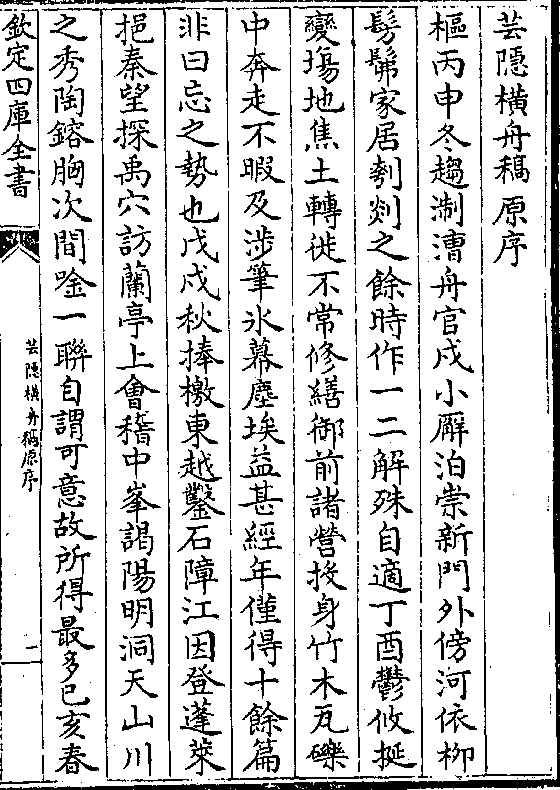 芸隠橫舟稿原序
樞丙申冬趨淛漕舟官戍小廨泊崇新門外傍河依柳
髣髴家居剗剡之餘時作一二解殊自適丁酉鬱攸挻
變塲地焦土轉徙不常修繕御前諸營投身竹木瓦礫
中奔走不暇及涉筆氷幕塵埃益甚經年僅得十餘篇
非曰忘之勢也戊戌秋捧檄東越鑿石障江因登蓬萊
挹秦望探禹穴訪蘭亭上會稽中峯謁陽明洞天山川
之秀陶鎔胸次間唫一聯自謂可意故所得最多己亥春
欽定四庫全書
芸隠橫舟稿原序
一